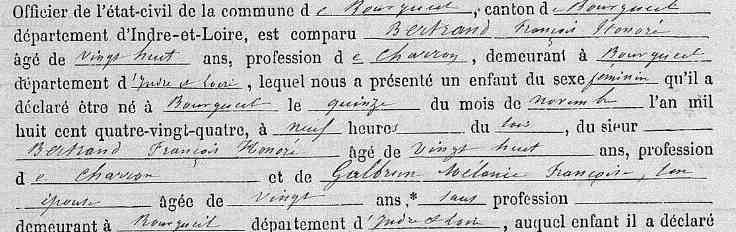 Officier de l'état-civil de la commune de Bourgueil, canton de Bourgueil
département d'Indre-et-Loire, est comparu Bertrand François Honoré
âgé de vingt huit ans, profession de Charron, demeurant à Bourgueil
département d'Indre et Loire, lequel nous a présenté un enfant du sexe féminin qu'il a
déclaré être né à Bourgueil le quinze du mois de novembre l'an mil
huit cent quatre-vingt-quatre, à neuf heures du soir, du sieur
Bertrand François Honoré âgé de vingt huit ans, profession
de Charron et de Galbrun Mélanie Françoise, son
épouse âgée de vingt ans,* sans profession
demeurant à Bourgueil département d'Indre et Loire, auquel enfant il a déclaré